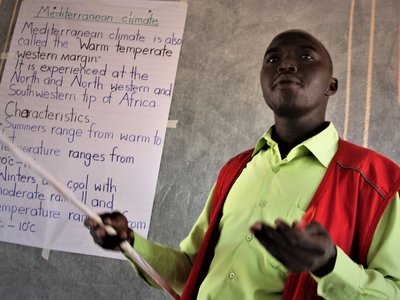 Mediterranean climate
Mediterranean climate is also
called the Warm temperate
western margin.
It is experienced at the
North and North western and
Southwestern tip of Africa.
Characteristics:
Summers range from warm to
temperature ranges from
0°c-
Winters are cool with
moderate rainfall and
temperature ranges from
c - 10°c